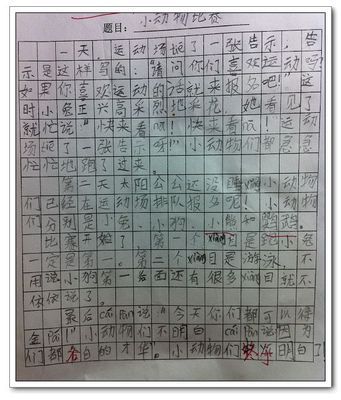 题目：小动物比赛
一天，运动场班了一张告示，告
示是这样写的："请问你们喜欢运动吗？
如果你喜欢运动的话就来报名吧！"这
时小兔正兴高采烈地来龙，她看见了
就忙说"快来看低！快来看低！运动
场班了一张告示呀！"小动物们都急急
忙忙地跑了过来。
第二天太阳公公还没睡小动物
们已经在运动场排队报名吧！小动物
们分别是小兔、小狗、小熊和鹅鹅。
比赛开始了，第一个xiàng目是跑小兔
一定是第一。第二个xiàng目是游泳，不
用说小狗第一后面还有很多xiàng目就不
依依说了。
最后cái pàn说："今天你们都可以得
金牌！"小动物们不明白cái pàn说因为
们都各白的才华"。小动物们终于明白了！